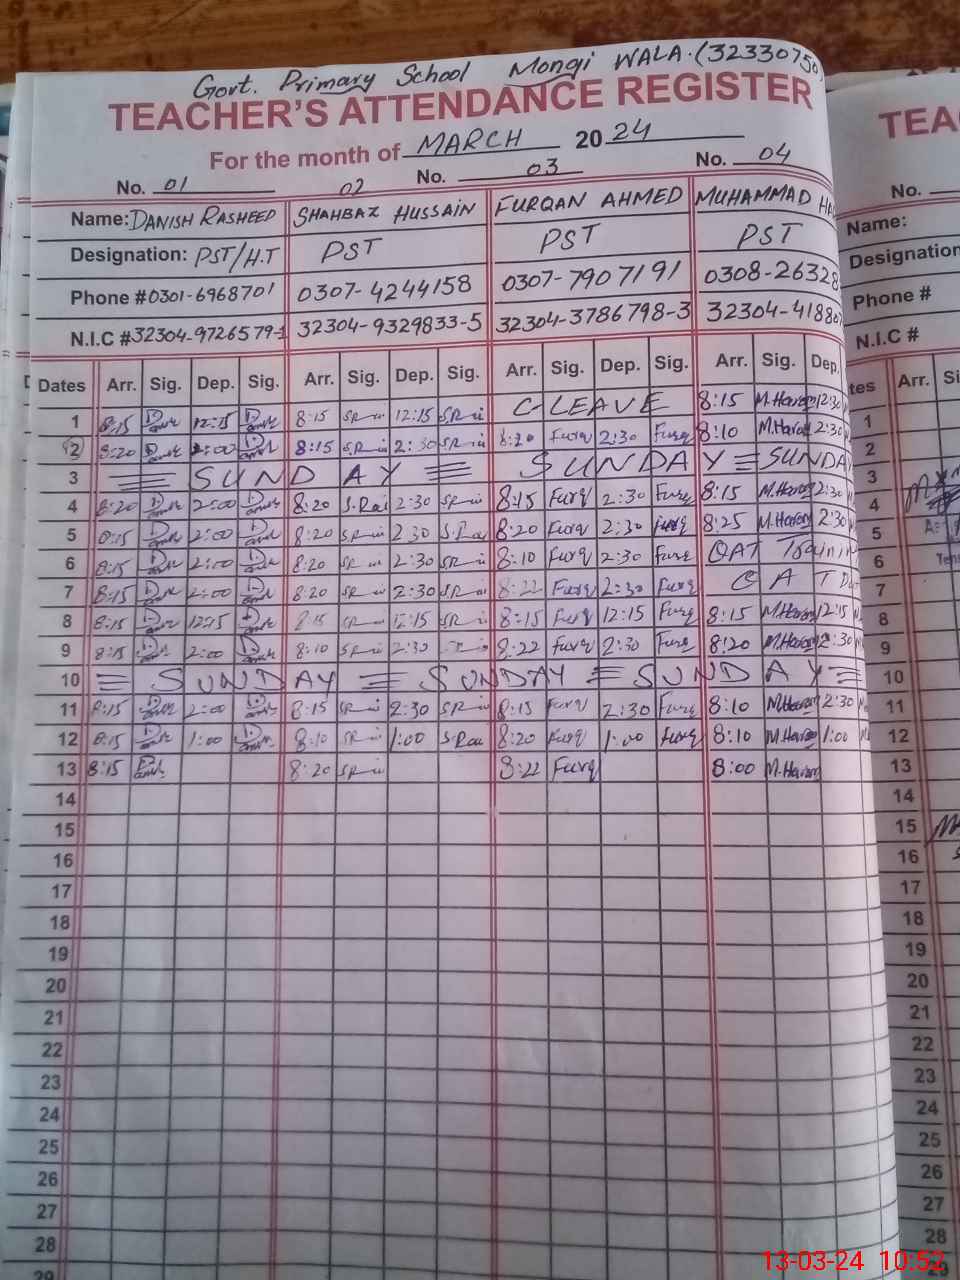 Govt. Primary School Mongi WALA.(32330750)
TEACHER'S ATTENDANCE REGISTER
For the month of MARCH 2024
No. 01 02 No. 03 No. 04
Name: DANISH RASHEED SHAHBAZ HUSSAIN FURQAN AHMED MUHAMMAD
Designation: PST/H.T PST PST PST
Phone # 0301-6968701 0307-4244158 0307-7907191 0308-26328
N.I.C # 32304-9726579-1 32304-9329833-5 32304-3786798-3 32304-41880
Dates Arr. Sig. Dep. Sig. Arr. Sig. Dep. Sig. Arr. Sig. Dep. Sig. Arr. Sig. Dep.
1 8:15 12:15 8:15 12:15 C-LEAVE 8:15 M.Haroon 12:30
2 8:20 2:00 8:15 2:30 8:20 Furq 2:30 Furq 8:10 M.Haroon 2:30
3 SUNDAY SUNDAY SUNDA
4 8:20 2:00 8:20 S.Rai 2:30 8:15 Furq 2:30 Furq 8:15 M.Haroon 2:30
5 8:15 2:00 8:20 2:30 8:20 Furq 2:30 Furq 8:25 M.Haroon 2:30
6 8:15 2:00 8:20 2:30 8:10 Furq 2:30 Furq QAT Trainin
7 8:15 2:00 8:20 2:30 8:22 Furq 2:30 Furq
8 8:15 12:15 8:15 12:15 8:15 Furq 12:15 Furq 8:15 M.Haroon 12:15
9 8:15 2:00 8:10 2:30 8:22 Furq 2:30 Furq 8:20 M.Haroon 2:30
10 SUNDAY SUNDAY SUNDAY
11 8:15 2:00 8:15 2:30 8:15 Furq 2:30 Furq 8:10 M.Haroon 2:30
12 8:15 1:00 8:10 1:00 S.Rai 8:20 Furq 1:00 Furq 8:10 M.Haroon 1:00
13 8:15 8:20 8:22 Furq 8:00 M.Haroon
14
15
16
17
18
19
20
21
22
23
24
25
26
27
28
29
TEA
No.
Name:
Designation
Phone #
N.I.C #
tes Arr. Si
1
2
3
4
5
6
7
8
9
10
11
12
13
14
15
16
17
18
19
20
21
22
23
24
25
26
27
28
29
13-03-24 10:52